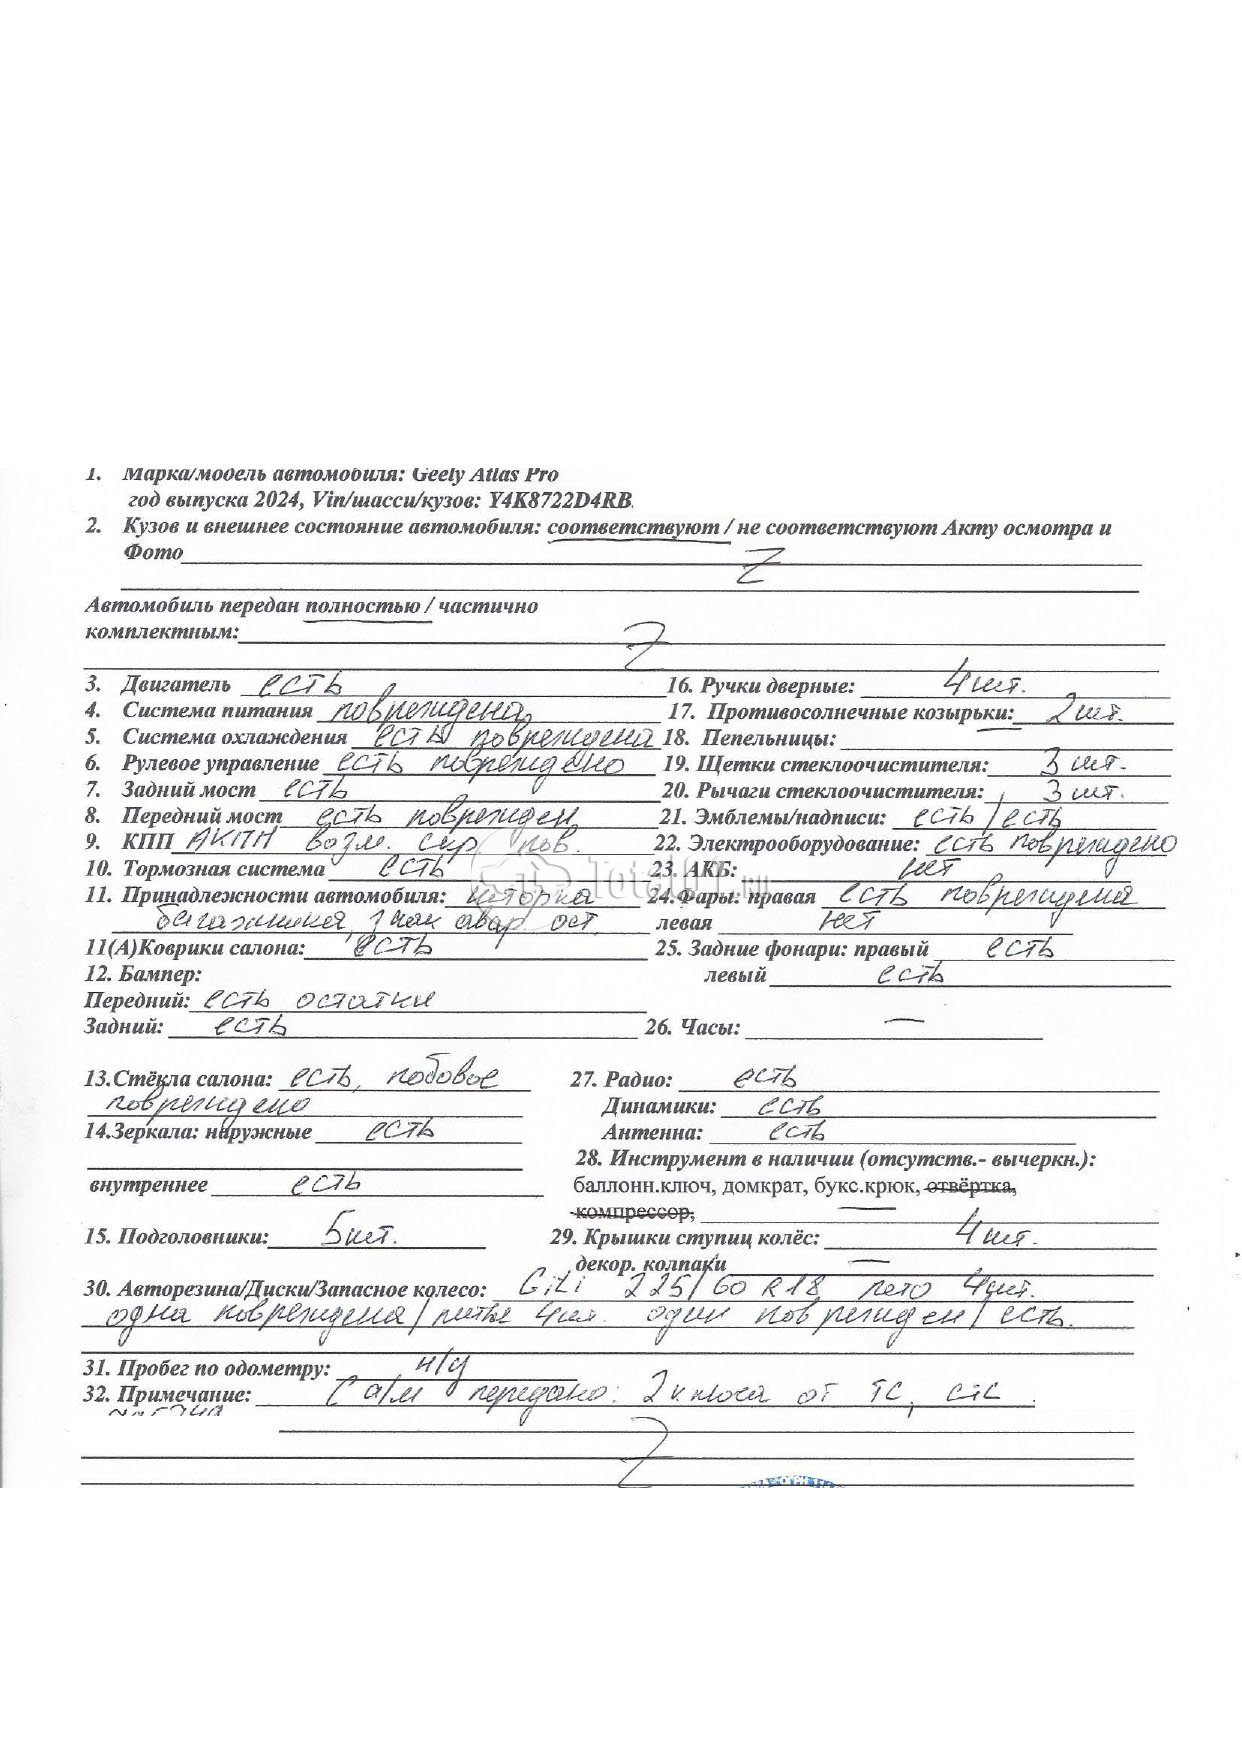 1. Марка/модель автомобиля: Geely Atlas Pro
год выпуска 2024, Vin/шасси/кузов: Y4K8722D4RB
2. Кузов и внешнее состояние автомобиля: соответствуют / не соответствуют Акту осмотра и
Фото Z
Автомобиль передан полностью / частично
комплектным: Z
3. Двигатель есть
4. Система питания повреждена
5. Система охлаждения есть повреждена
6. Рулевое управление есть повреждено
7. Задний мост есть
8. Передний мост есть поврежден
9. КПП АКПП возм. скр. пов.
10. Тормозная система есть
11. Принадлежности автомобиля: шторка
багажника, знак авар. ост.
11(А)Коврики салона: есть
12. Бампер:
Передний: есть остатки
Задний: есть
13.Стёкла салона: есть, лобовое
повреждено
14.Зеркала: наружные есть
внутреннее есть
15. Подголовники: 5шт.
16. Ручки дверные: 4шт.
17. Противосолнечные козырьки: 2шт.
18. Пепельницы: —
19. Щетки стеклоочистителя: 3 шт.
20. Рычаги стеклоочистителя: 3 шт.
21. Эмблемы/надписи: есть / есть
22. Электрооборудование: есть повреждено
23. АКБ: нет
24.Фары: правая есть повреждена
левая нет
25. Задние фонари: правый есть
левый есть
26. Часы: —
27. Радио: есть
Динамики: есть
Антенна: есть
28. Инструмент в наличии (отсутств.- вычеркн.):
баллонн.ключ, домкрат, букс.крюк, отвёртка,
компрессор, —
29. Крышки ступиц колёс: 4шт.
декор. колпаки —
30. Авторезина/Диски/Запасное колесо: Giti 225/60 R18 лето 4шт.
одна повреждена / литые 4шт. один поврежден / есть.
31. Пробег по одометру: н/д
32. Примечание: С а/м передано: 2 ключа от ТС, СТС
Z
Total01.ru